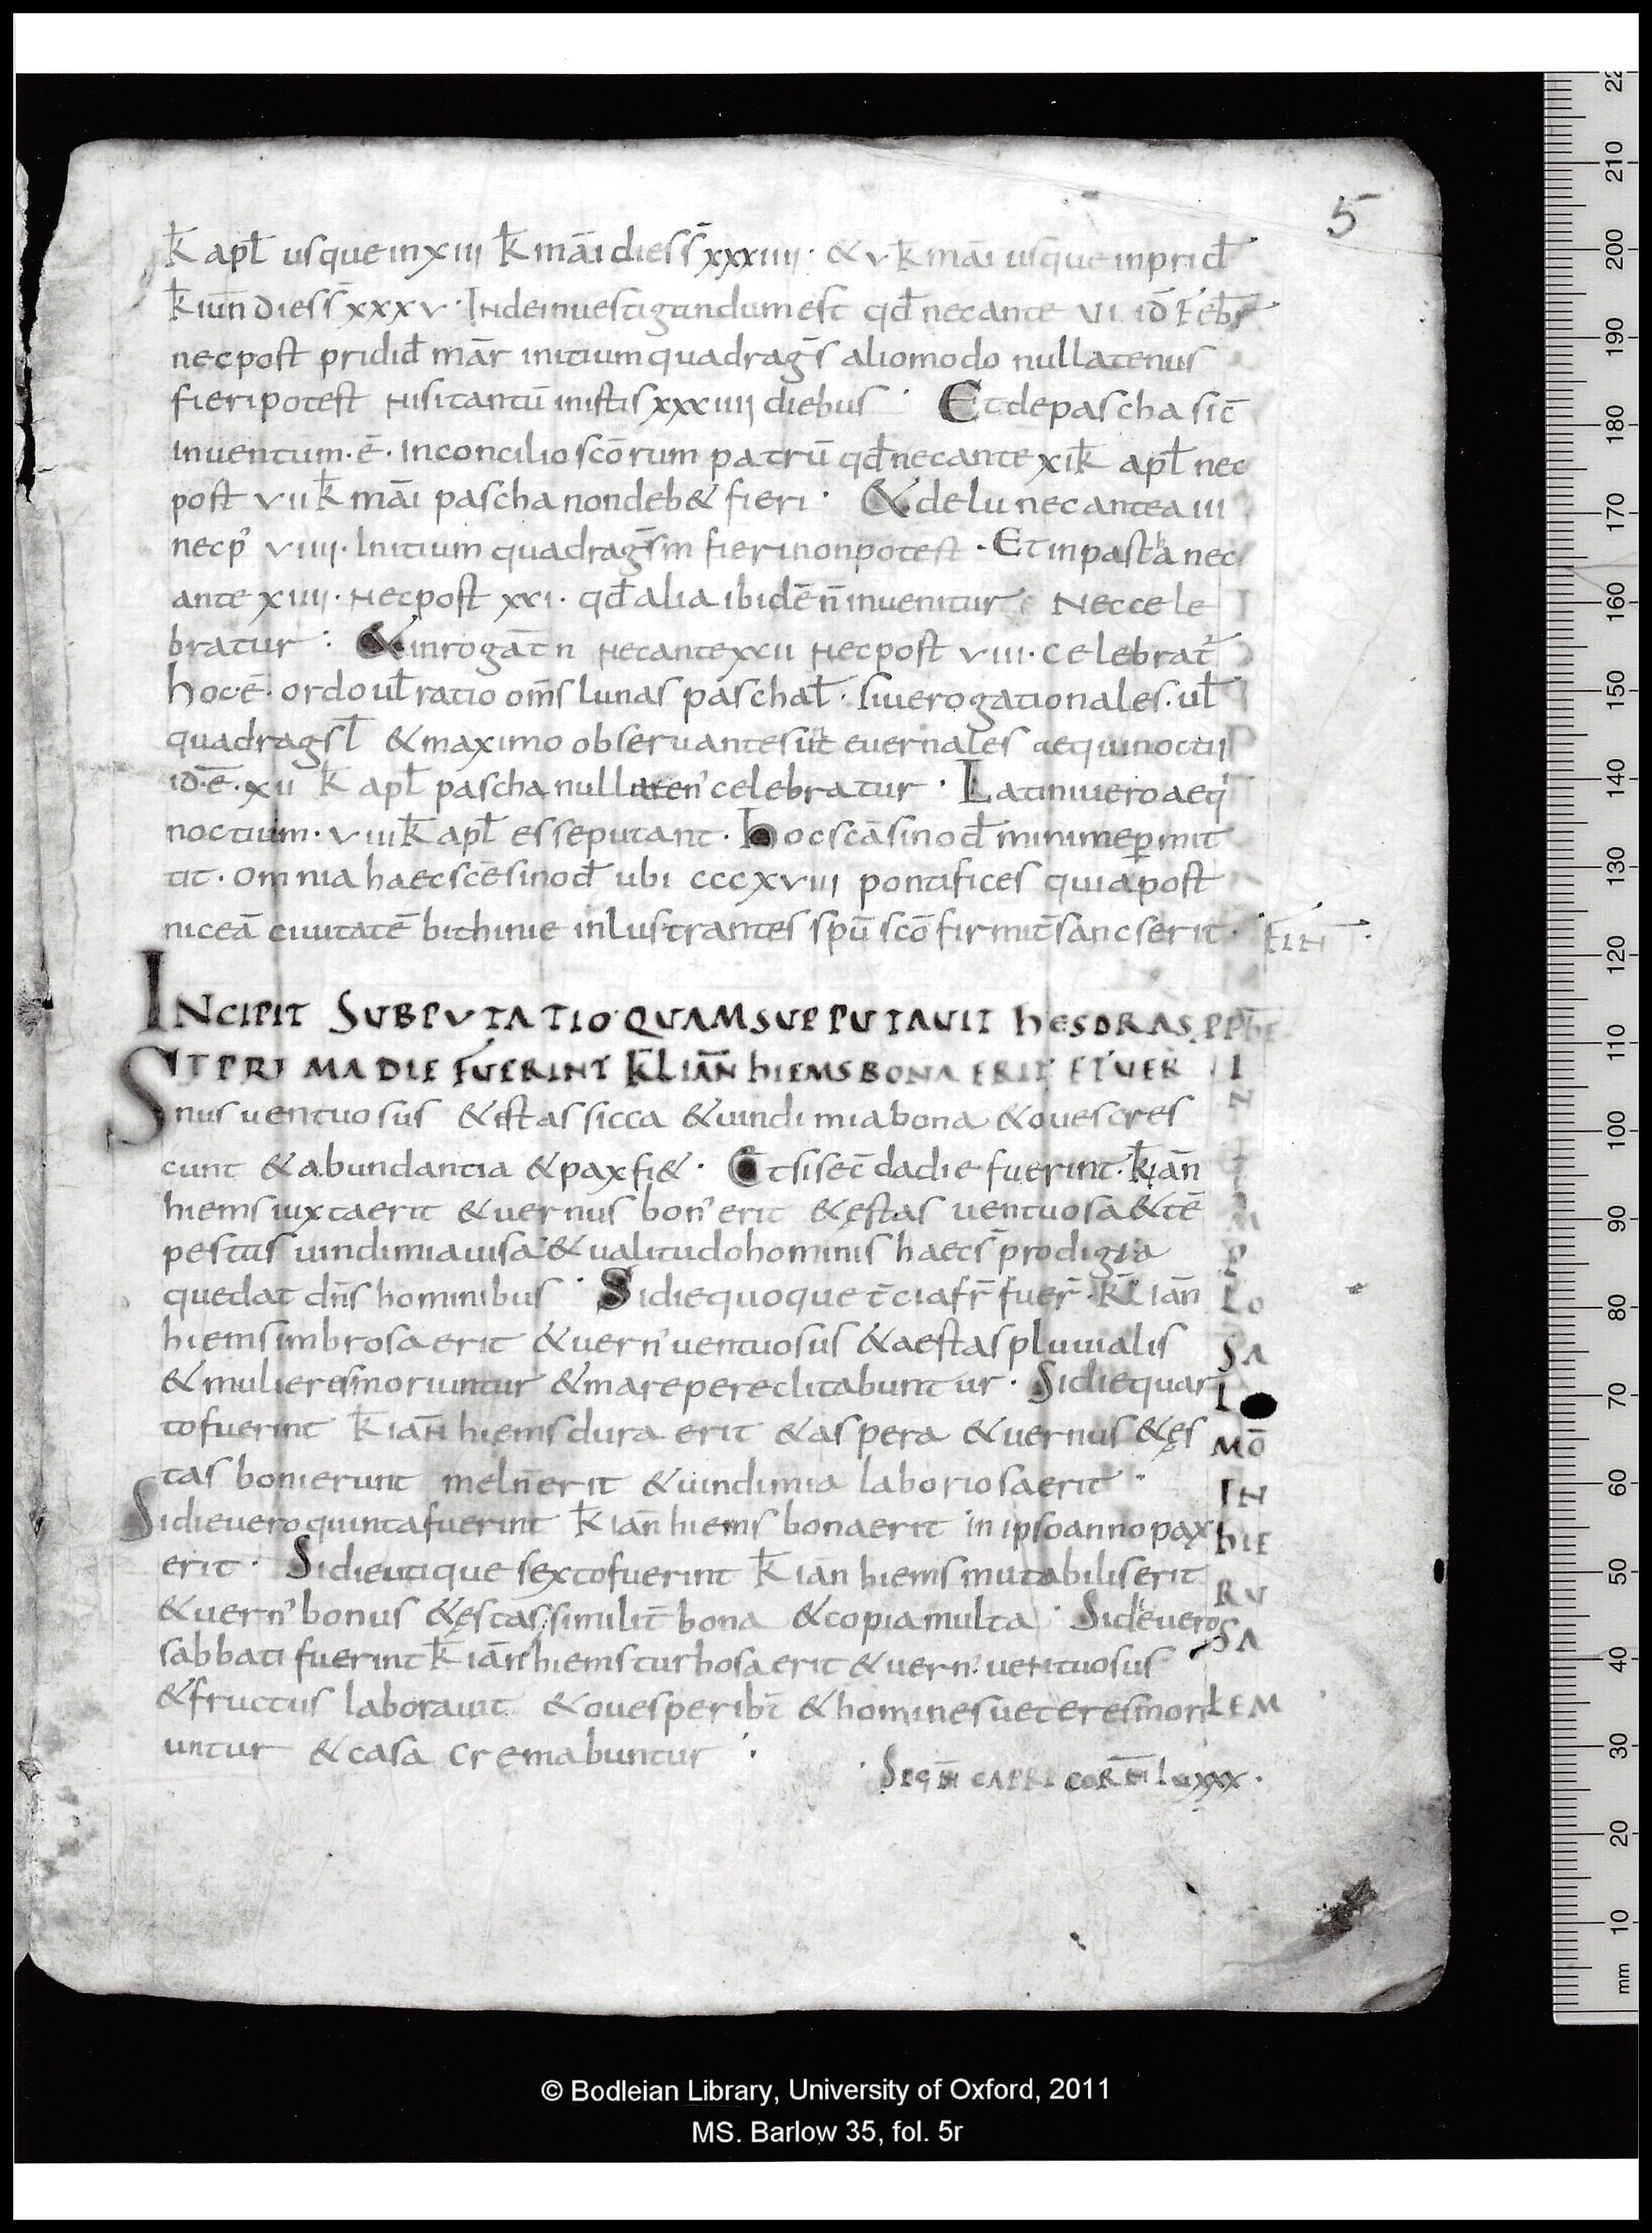 5
k̄ apl̄ usque in xiii k̄ māi dies s̄ xxxiiii · & v k̄ māi usque in prid̄
k̄ iun̄ dies s̄ xxxv · Inde inuestigandum est qđ nec ante vi id̄ Febr̄
nec post pridid̄ mār initium quadrag̅s alio modo nullatenus
fieri potest nisi tantū in istis xxxiiii diebus · Et de pascha sic̄
inuentum · ē · in concilio scōrum patrū qđ nec ante xi k̄ apl̄ nec
post vii k̄ māi pascha non deb& fieri · & de lu nec antea iii
nec p' viiii · Initium quadrag̅sm fieri non potest · Et in pascha nec
ante xiiii · nec post xxi · qđ alia ibidē n̄ inuenitur Nec cele
bratur : & in rogat̄ n nec ante xxii nec post viii · celebrat̄
hoc · ē · ordo ul̄ ratio om̄s lunas paschal̄ · siue rogationales · ul̄
quadragsl̄ & maximo obseruantes ut euernales aequinoctii
id · ē · xii k̄ apl̄ pascha nullaten' celebratur · Latini uero aeq
noctium · viii k̄ apl̄ esse putant · hoc scā sinod̄ minime ꝑmit
tit · Omnia haec scē sinod̄ ubi cccxviii pontifices qui apost
niceā ciuitatē bithinie inlustrantes spū scō firmit̄ sancserit · FIN̄ ·
INCIPIT SUBPUTATIO QUAM SUPPUTAUIT HESDRAS PPHE
SIT PRIMA DIE FUERINT KL̄ IAN̄ HIEMS BONA ERIT ET UER
nus uentuosus & estas sicca & uindimia bona & oues cres
cunt & abundantia & pax fi& · Et si sec̄da die fuerint · k̄ iān
hiems iuxta erit & uernus bon' erit & ęstas uentuosa & tē
pestas uindimia uisa & ualitudo hominis haec s̄ prodigia
que dat dn̄s hominibus · Si die quoque t̄cia fr̄ fuer̄ · KL̄ iān
hiems imbrosa erit & uern' uentuosus & aestas pluuialis
& mulieres moriuntur & mare pereclitabuntur · Si die quar
to fuerint k̄ iān hiems dura erit & aspera & uernus & ęs
tas boni erunt mel n̄ erit & uindimia laboriosa erit ·
Si die uero quinta fuerint k̄ iān hiems bona erit in ipso anno pax
erit · Si die utique sexto fuerint k̄ iān hiems mutabilis erit
& uern' bonus & ęstas similit̄ bona & copia multa · Si die uero
sabbati fuerint k̄ iān hiems turbosa erit & uern' uentuosus
& fructus laborauit & oues peribt̄ & homines ueteres mori
untur & casa cremabuntur :
· Sign̄ CAPRICORN̄ l uxxx ·
IN
T
E
M
P
LO
SA
L
MŌ
IN
HIE
RU
SA
LEM
© Bodleian Library, University of Oxford, 2011
MS. Barlow 35, fol. 5r
22
210
200
190
180
170
160
150
140
130
120
110
100
90
80
70
60
50
40
30
20
10
mm